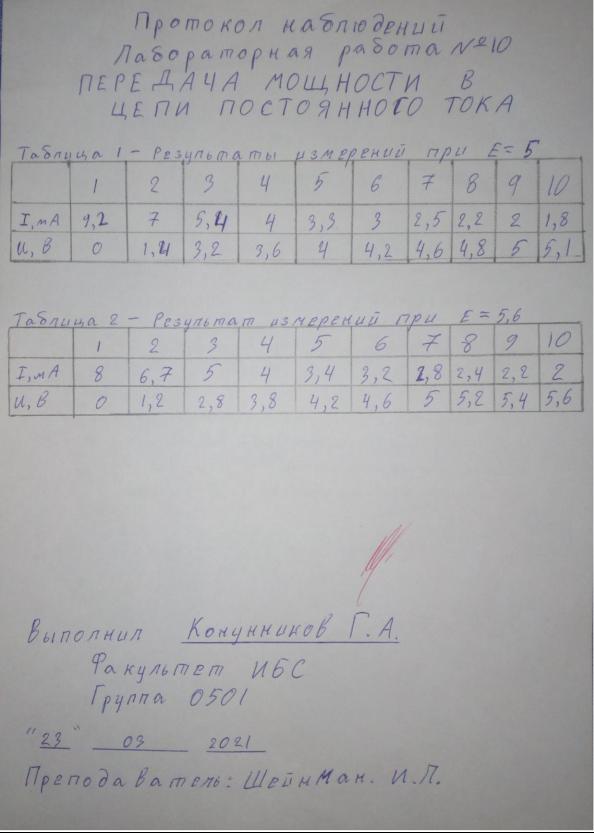 Протокол наблюдений
Лабораторная работа №10
ПЕРЕДАЧА МОЩНОСТИ В
ЦЕПИ ПОСТОЯННОГО ТОКА
Таблица 1 - Результаты измерений при E = 5
1 2 3 4 5 6 7 8 9 10
I, мА 9,2 7 5,4 4 3,3 3 2,5 2,2 2 1,8
U, В 0 1,4 3,2 3,6 4 4,2 4,6 4,8 5 5,1
Таблица 2 - Результат измерений при E = 5,6
1 2 3 4 5 6 7 8 9 10
I, мА 8 6,7 5 4 3,4 3,2 2,8 2,4 2,2 2
U, В 0 1,2 2,8 3,8 4,2 4,6 5 5,2 5,4 5,6
Выполнил Конунников Г.А.
Факультет ИБС
Группа 0501
"23" 03 2021
Преподаватель: Шейнман. И.Л.